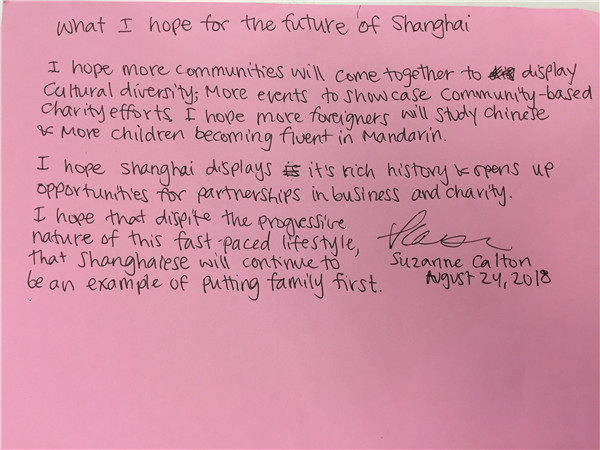 What I hope for the future of Shanghai
I hope more communities will come together to display
Cultural diversity; More events to showcase Community-based
Charity efforts. I hope more foreigners will study chinese
& More children becoming fluent in Mandarin.
I hope Shanghai displays it's rich history & opens up
opportunities for partnerships in business and charity.
I hope that dispite the progressive
nature of this fast-paced lifestyle,
that Shanghaiese will continue to
be an example of putting family first.
Suzanne Calton
August 24, 2018